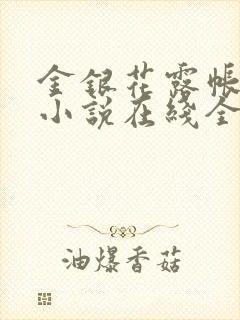 金银花露帐
小说在线全
油爆香菇